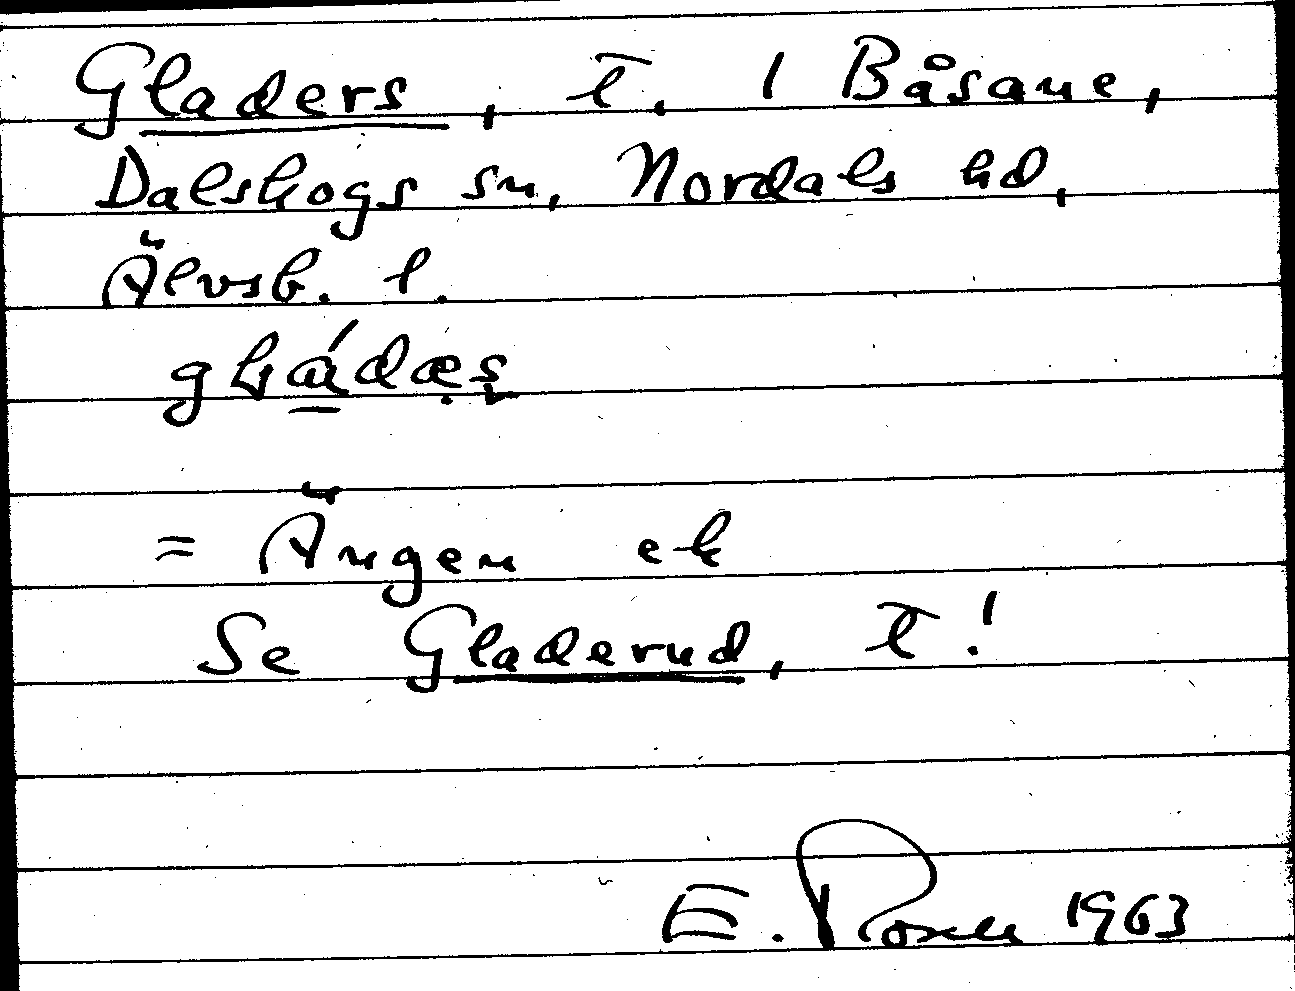 Gladers, t. 1 Båsane,
Dalskogs sn, Nordals hd,
Älvsb. l.
= Ängen ek
Se Gladerud, t!
E. Rosell 1963